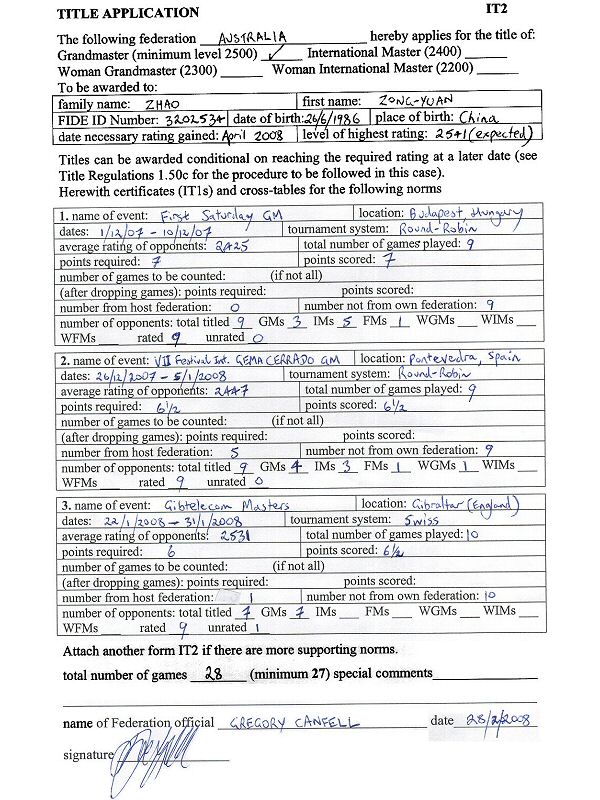 TITLE APPLICATION IT2
The following federation AUSTRALIA hereby applies for the title of:
Grandmaster (minimum level 2500) ✓ International Master (2400) ______
Woman Grandmaster (2300) ______ Woman International Master (2200) ______
To be awarded to:
family name: ZHAO first name: ZONG-YUAN
FIDE ID Number: 3202534 date of birth: 26/6/1986 place of birth: China
date necessary rating gained: April 2008 level of highest rating: 2541 (expected)
Titles can be awarded conditional on reaching the required rating at a later date (see
Title Regulations 1.50c for the procedure to be followed in this case).
Herewith certificates (IT1s) and cross-tables for the following norms
1. name of event: First Saturday GM location: Budapest, Hungary
dates: 1/12/07 - 10/12/07 tournament system: Round-Robin
average rating of opponents: 2425 total number of games played: 9
points required: 7 points scored: 7
number of games to be counted: (if not all)
(after dropping games): points required: points scored:
number from host federation: 0 number not from own federation: 9
number of opponents: total titled 9 GMs 3 IMs 5 FMs 1 WGMs ___ WIMs ___
WFMs ___ rated 9 unrated 0
2. name of event: VII Festival Int. GEMA CERRADO GM location: Pontevedra, Spain
dates: 26/12/2007 - 5/1/2008 tournament system: Round-Robin
average rating of opponents: 2447 total number of games played: 9
points required: 6½ points scored: 6½
number of games to be counted: (if not all)
(after dropping games): points required: points scored:
number from host federation: 5 number not from own federation: 9
number of opponents: total titled 9 GMs 4 IMs 3 FMs 1 WGMs 1 WIMs ___
WFMs ___ rated 9 unrated 0
3. name of event: Gibtelecom Masters location: Gibraltar (England)
dates: 22/1/2008 - 31/1/2008 tournament system: Swiss
average rating of opponents: 2531 total number of games played: 10
points required: 6 points scored: 6½
number of games to be counted: (if not all)
(after dropping games): points required: points scored:
number from host federation: 1 number not from own federation: 10
number of opponents: total titled 7 GMs 7 IMs ___ FMs ___ WGMs ___ WIMs ___
WFMs ___ rated 9 unrated 1
Attach another form IT2 if there are more supporting norms.
total number of games 28 (minimum 27) special comments
name of Federation official GREGORY CANFELL date 28/2/2008
signature